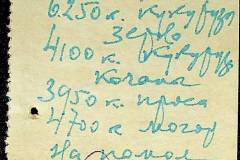 6250 к. кукуруз
зерно
4100 к. кукуруз
Качана
3950 к. проса
4700 к могар
На помол